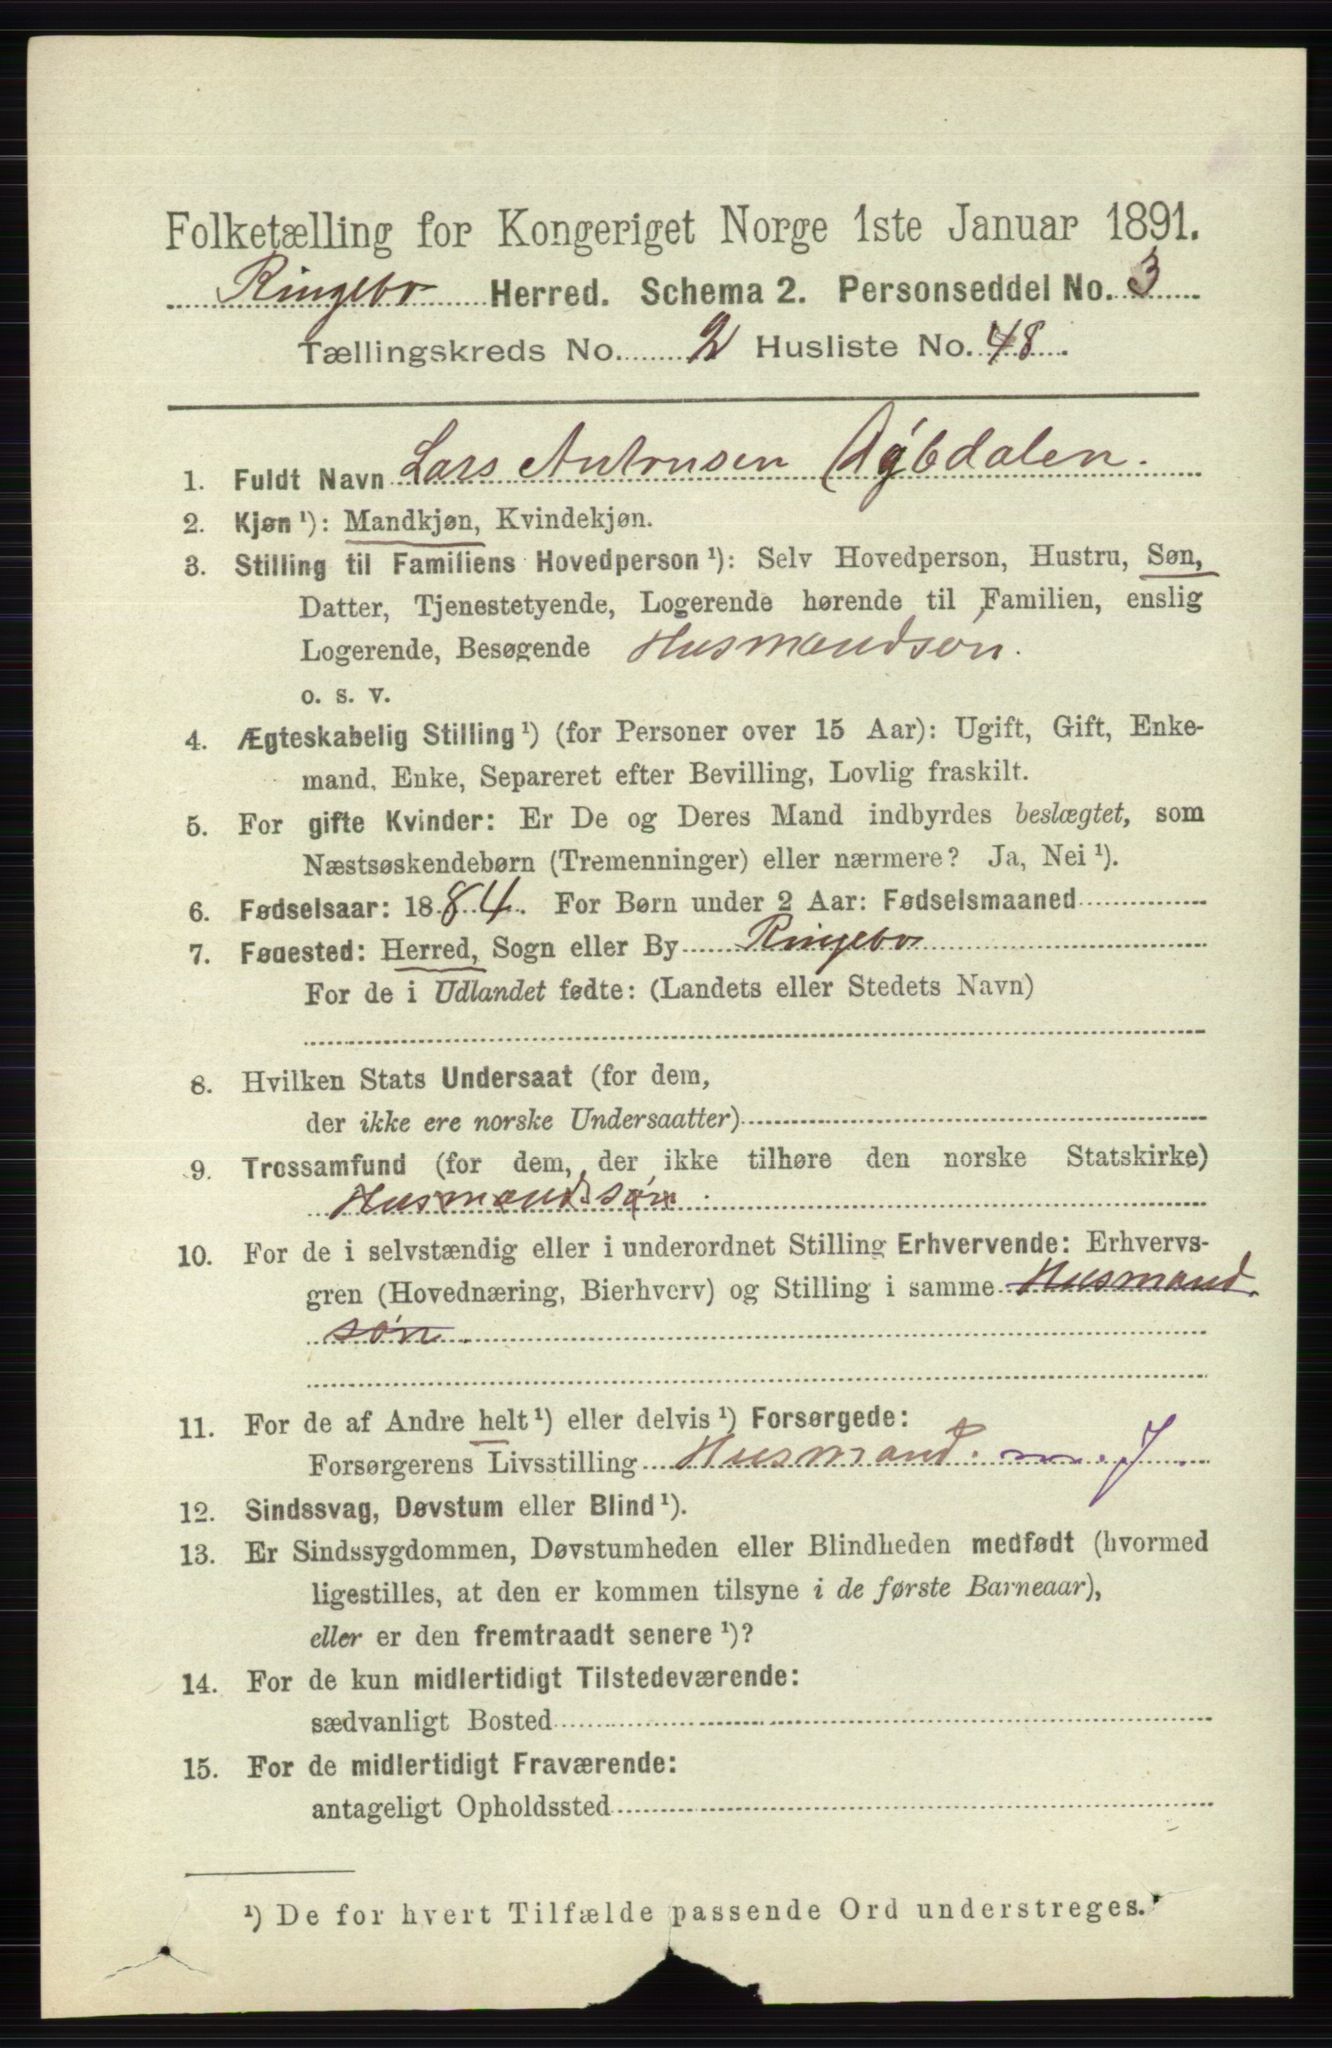 Folketælling for Kongeriget Norge 1ste Januar 1891.
Ringebo Herred. Schema 2. Personseddel No. 3
Tællingskreds No. 2 Husliste No. 48.
1. Fuldt Navn Lars Antonsen Dybdalen.
2. Kjøn ¹): Mandkjøn, Kvindekjøn.
3. Stilling til Familiens Hovedperson ¹): Selv Hovedperson, Hustru, Søn,
Datter, Tjenestetyende, Logerende hørende til Familien, enslig
Logerende, Besøgende Husmandsøn.
o. s. v.
4. Ægteskabelig Stilling ¹) (for Personer over 15 Aar): Ugift, Gift, Enke-
mand, Enke, Separeret efter Bevilling, Lovlig fraskilt.
5. For gifte Kvinder: Er De og Deres Mand indbyrdes beslægtet, som
Næstsøskendebørn (Tremenninger) eller nærmere? Ja, Nei ¹).
6. Fødselsaar: 1884. For Børn under 2 Aar: Fødselsmaaned
7. Fødested: Herred, Sogn eller By Ringebo
For de i Udlandet fødte: (Landets eller Stedets Navn)
8. Hvilken Stats Undersaat (for dem,
der ikke ere norske Undersaatter)
9. Trossamfund (for dem, der ikke tilhøre den norske Statskirke)
Husmandsøn.
10. For de i selvstændig eller i underordnet Stilling Erhvervende: Erhvervs-
gren (Hovednæring, Bierhverv) og Stilling i samme Husmand
søn.
11. For de af Andre helt ¹) eller delvis ¹) Forsørgede:
Forsørgerens Livsstilling Husmand. m. J.
12. Sindssvag, Døvstum eller Blind ¹).
13. Er Sindssygdommen, Døvstumheden eller Blindheden medfødt (hvormed
ligestilles, at den er kommen tilsyne i de første Barneaar),
eller er den fremtraadt senere ¹)?
14. For de kun midlertidigt Tilstedeværende:
sædvanligt Bosted
15. For de midlertidigt Fraværende:
antageligt Opholdssted
¹) De for hvert Tilfælde passende Ord understreges.